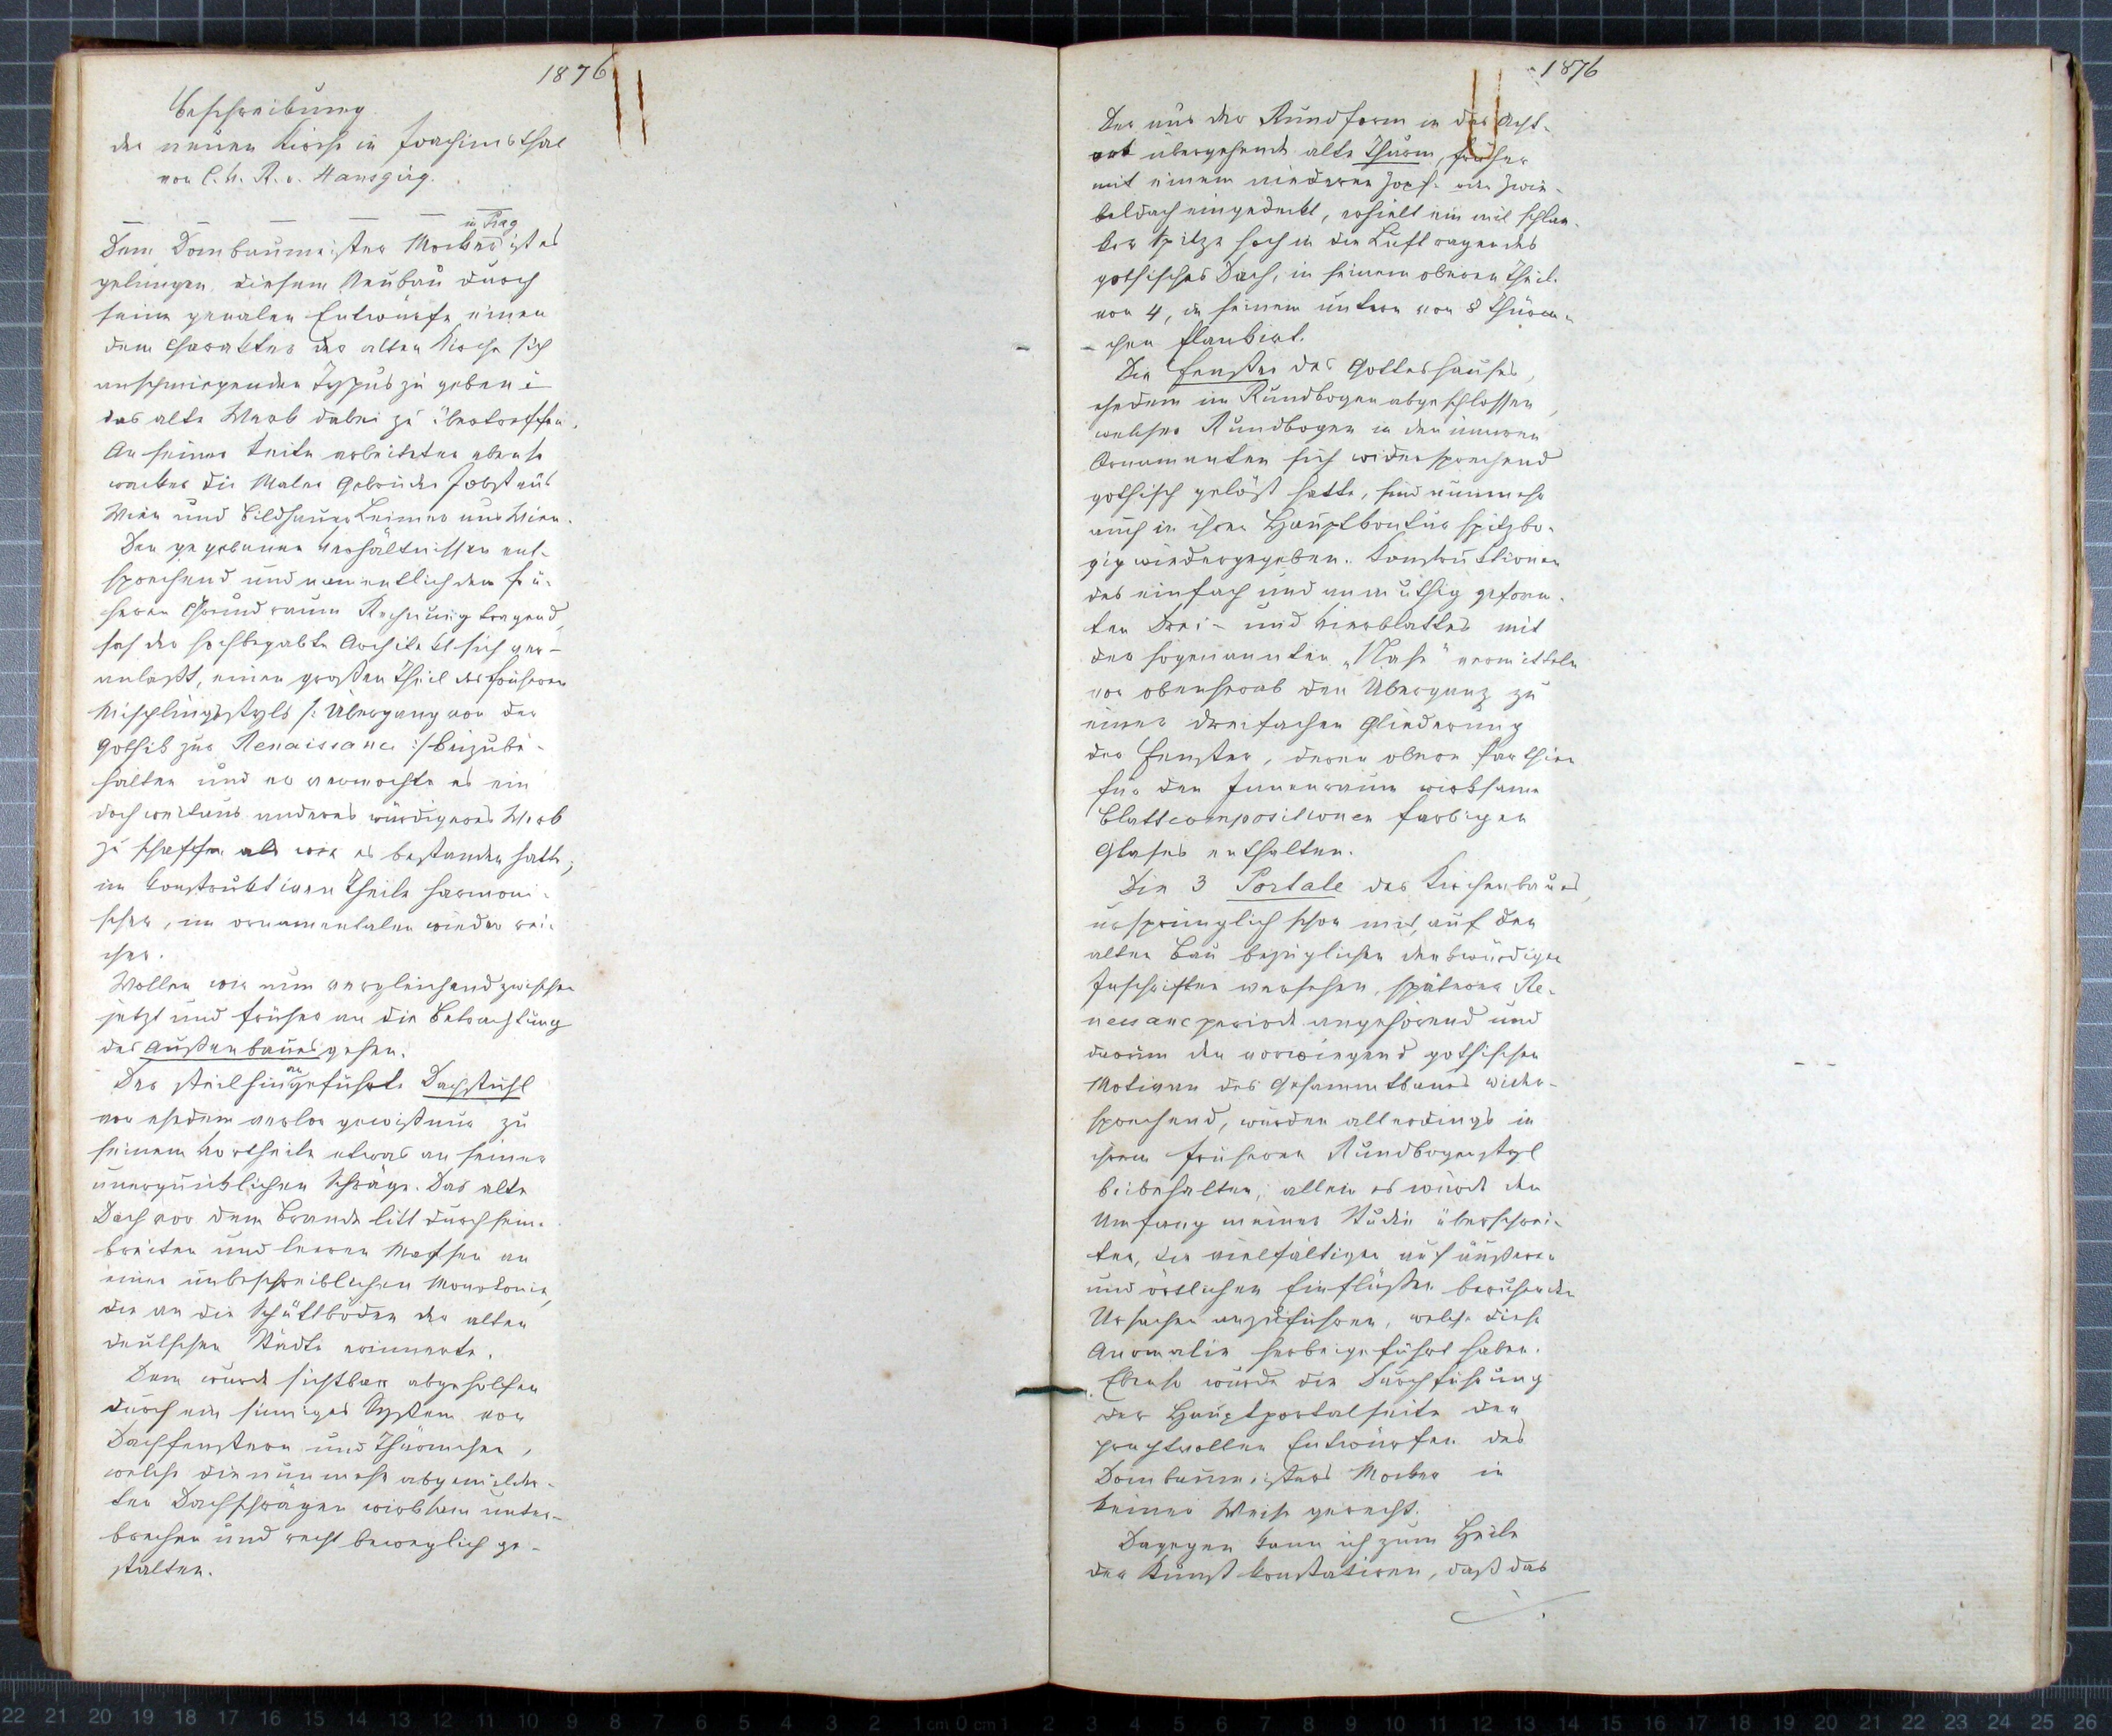 1876
Beschreibung
der neuen Kirche in Joachimsthal
von C. V. R. v. Hansgirg.
in Prag
Dem Dombaumeister Mocker ist es
gelungen diesem Neubau durch
seine genialen Entwürfe einen
dem Charakter der alten Kirche sich
anschmiegenden Typus zu geben u
das alte Werk dabei zu übertreffen.
An seiner Seite arbeiteten ebenso
wacker die Maler Gebrüder Jobst aus
Wien und Bildhauer Leimer aus Wien.
Den gegebenen Verhältnissen ent-
sprechend und namentlich dem frü-
heren Grundraum Rechnung tragend,
sah der hochbegabte Architekt sich ver-
anlaßt, einen großen Theil des früheren
Mischlingsstyls /: Übergang von der
Gothik zur Renaissance :/ beizube-
halten und er vermochte es ein
doch weitaus anderes würdigeres Werk
zu schaffen als wie es bestanden hatte;
im konstruktiven Theile harmoni-
scher, im ornamentalen wieder rei-
cher.
Wollen wir nun vergleichend zwischen
jetzt und früher an die Betrachtung
des Außenbaues gehen.
an
Der steil hingeführte Dachstuhl
von ehedem verlor gewiß nur zu
seinem Vortheile etwas an seiner
unerquicklichen Schräge. Das alte
Dach vor dem Brande litt durch seine
breiten und leeren Massen an
einer unbeschreiblichen Monotonie,
die an die Schüttböden der alten
deutschen Städte erinnerte.
Dem wurde sichtbar abgeholfen
durch ein sinniges System von
Dachfenstern und Thürmchen,
welche die nunmehr abgemilder-
ten Dachschrägen wirksam unter-
brechen und recht beweglich ge-
stalten.
1876
Der aus der Rundform in das Acht-
eck übergehende alte Thurm, früher
mit einem niederen Zopf- oder Zwie-
beldach eingedeckt, erhielt ein mit schlan-
ker Spitze hoch in die Luft ragendes
gothisches Dach, in seinem oberen Theil
von 4, in seinem untern von 8 Thürm-
chen flankirt.
Die Fenster des Gotteshauses,
ehedem im Rundbogen abgeschlossen,
welcher Rundbogen in den inneren
Ornamenten sich widersprechend
gothisch gelöst hatte, sind nunmehr
auch in ihrer Hauptkontur spitzbo-
gig wiedergegeben. Konstruktionen
des einfach und anmuthig geform-
ten Drei- und Vierblattes mit
der sogenannten „Nase" vermitteln
von obenherab den Übergang zu
einer dreifachen Gliederung
der Fenster, deren obere Parthien
für den Innenraum wirksame
Blattcompositionen farbigen
Glases enthalten.
Die 3 Portale des Kirchenbaues,
ursprünglich schon mit, auf den
alten Bau bezüglichen denkwürdigen
Inschriften versehen, späterer Re-
neissanceperiode angehörend und
darum den vorwiegend gothischen
Motiven des Gesammtbaues wider-
sprechend, wurden allerdings in
ihrem früheren Rundbogenstyl
beibehalten; allein es würde den
Umfang meiner Studie überschrei-
ten, die vielfältigen auf äußeren
und örtlichen Einflüßen beruhenden
Ursachen anzuführen, welche diese
Anomalie herbeigeführt haben.
Ebenso wurde die Durchführung
der Hauptportalseite den
prachtvollen Entwürfen des
Dombaumeisters Mocker in
keiner Weise gerecht.
Dagegen kann ich zum Heile
der Kunst konstatiren, daß das